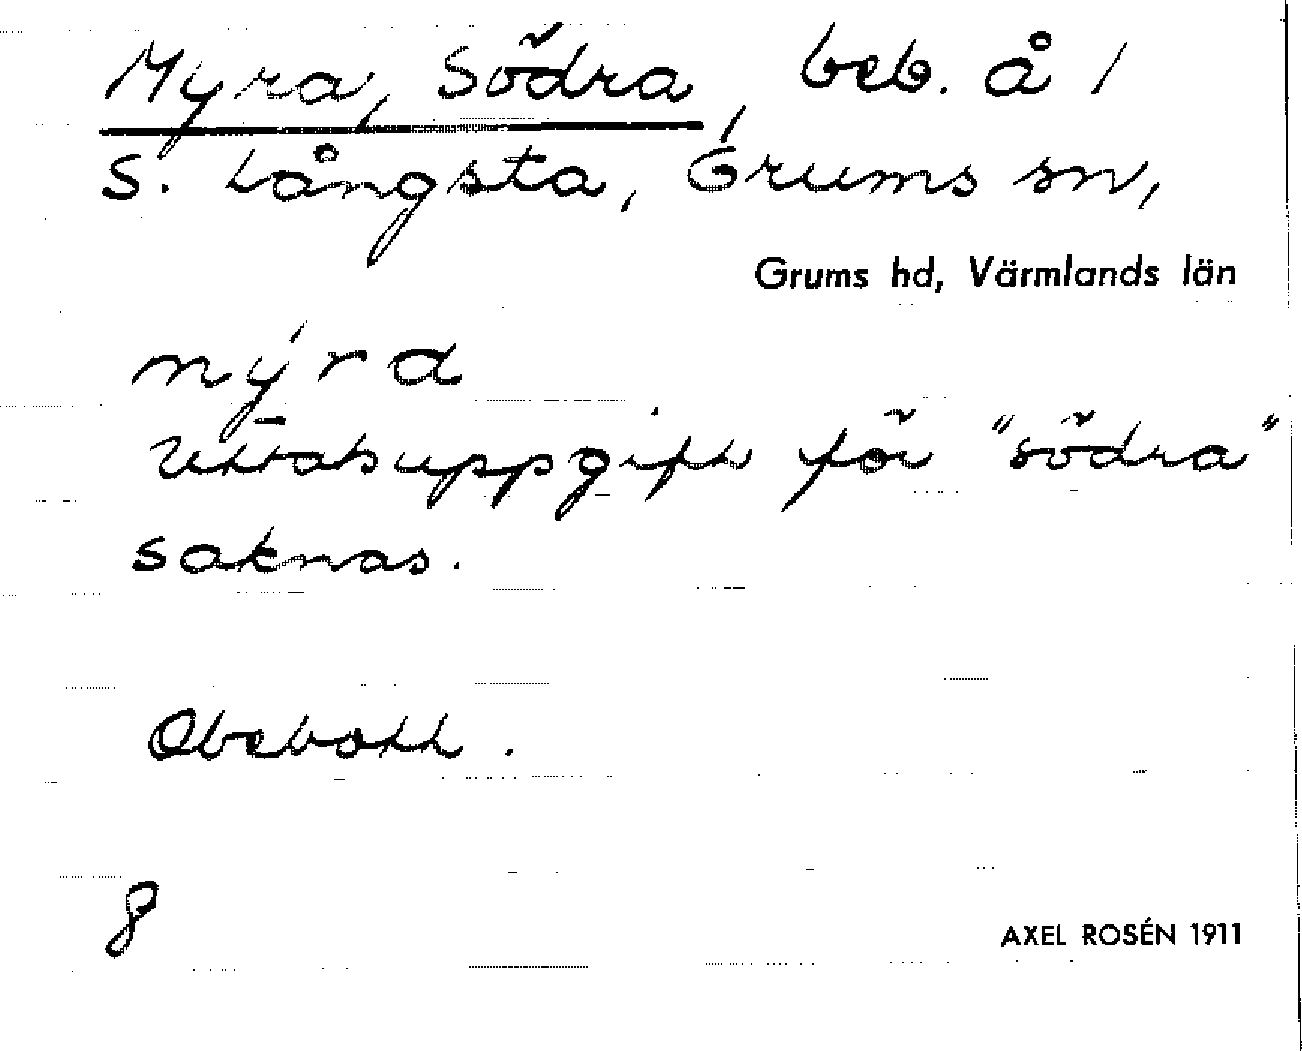 Myra, Södra, beb. å /
S. Långsta, Grums sn,
Grums hd, Värmlands län
mýra
Uttalsuppgift för "södra"
saknas.
Obebott.
8
AXEL ROSÉN 1911